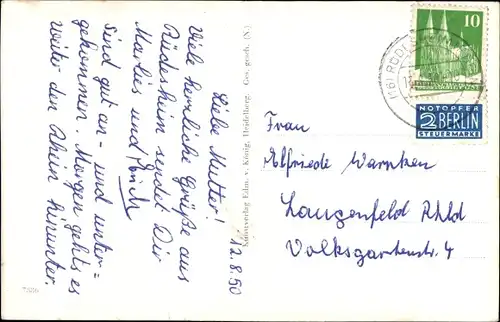 12.8.50
Liebe Mutter!
Viele herzliche Grüße aus
Rüdesheim sendet Dir
Marlies und Erich
Sind gut an- und unter=
gekommen. Morgen geht's es
weiter den Rhein hinunter.
Kunstverlag Edm. v. König, Heidelberg. Ges. gesch. (N.)
10
NOTOPFER
2 BERLIN
STEUERMARKE
Frau
Elfriede Warnken
Langenfeld Rhld
Volksgartenstr. 4